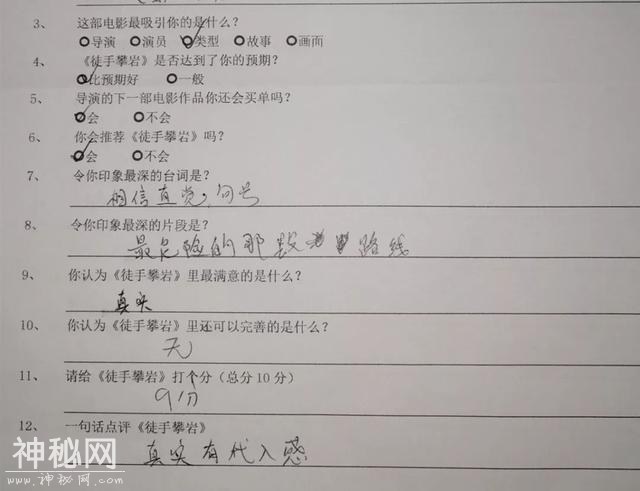 3、 这部电影最吸引你的是什么？
○导演 ○演员 ○类型 ○故事 ○画面
4、 《徒手攀岩》是否达到了你的预期？
○比预期好 ○一般
5、 导演的下一部电影作品你还会买单吗？
○会 ○不会
6、 你会推荐《徒手攀岩》吗？
○会 ○不会
7、 令你印象最深的台词是？
相信直觉，句号
8、 令你印象最深的片段是？
最危险的那 路线
9、 你认为《徒手攀岩》里最满意的是什么？
真实
10、 你认为《徒手攀岩》里还可以完善的是什么？
无
11、 请给《徒手攀岩》打个分（总分10分）
9分
12、 一句话点评《徒手攀岩》
真实有代入感
神秘网
www.神秘网.com